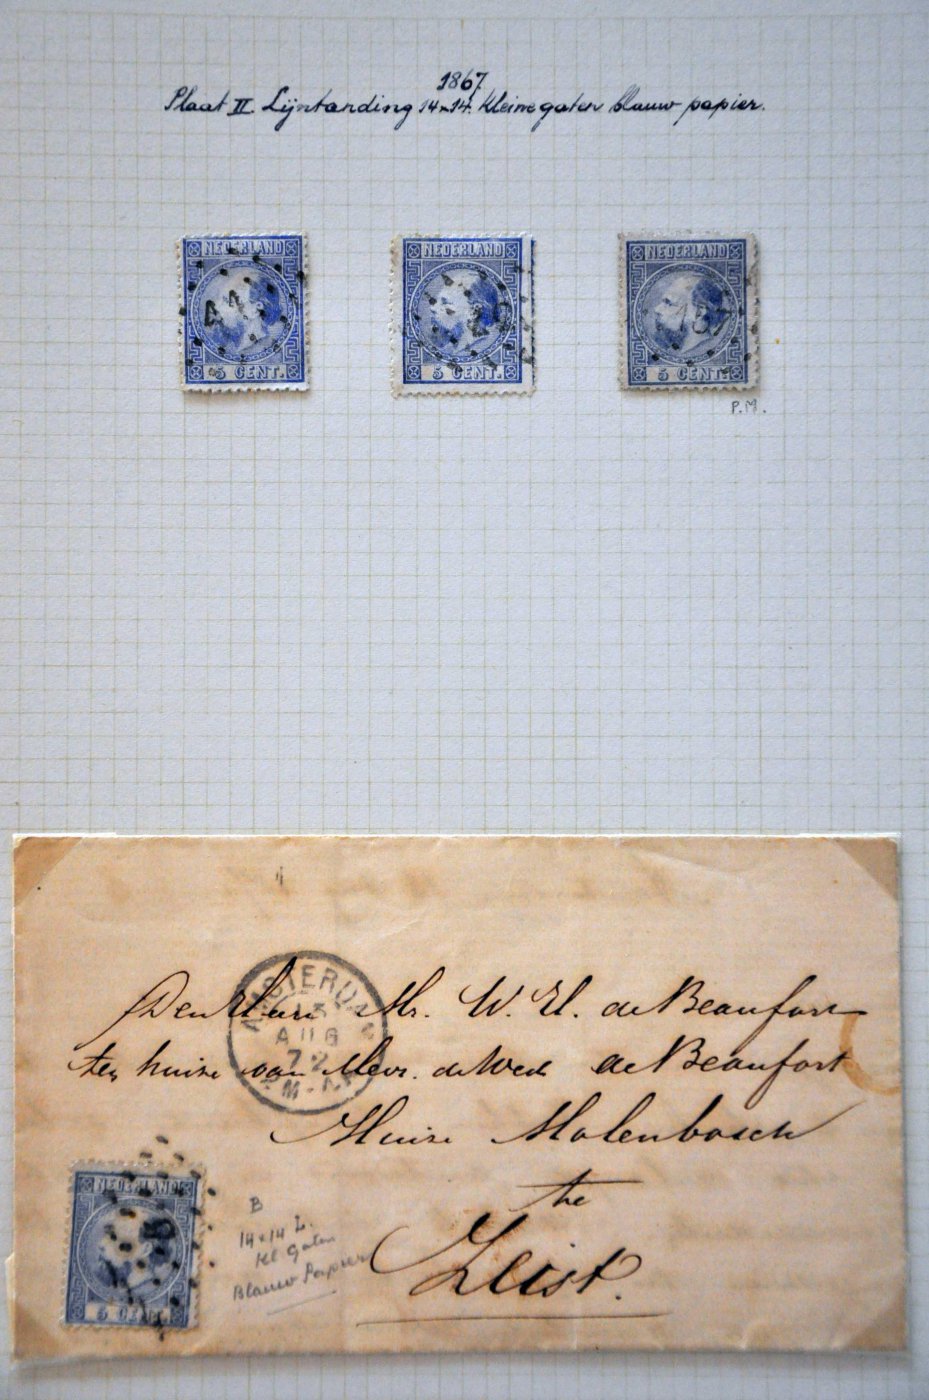 1867
Plaat II Lijntanding 14x14. Kleine gaten blauw papier.
NEDERLAND
44
5 CENT.
NEDERLAND
5 CENT.
NEDERLAND
5 CENT.
P.M.
AMSTERDAM
13
AUG
72
Den Heer Mr. W. H. de Beaufort
ten huize van Mevr. de Wed de Beaufort
Huize Molenbosch
the
Zeist.
NEDERLAND
5 CENT.
B
14x14 L.
Kl Gaten
Blauw Papier